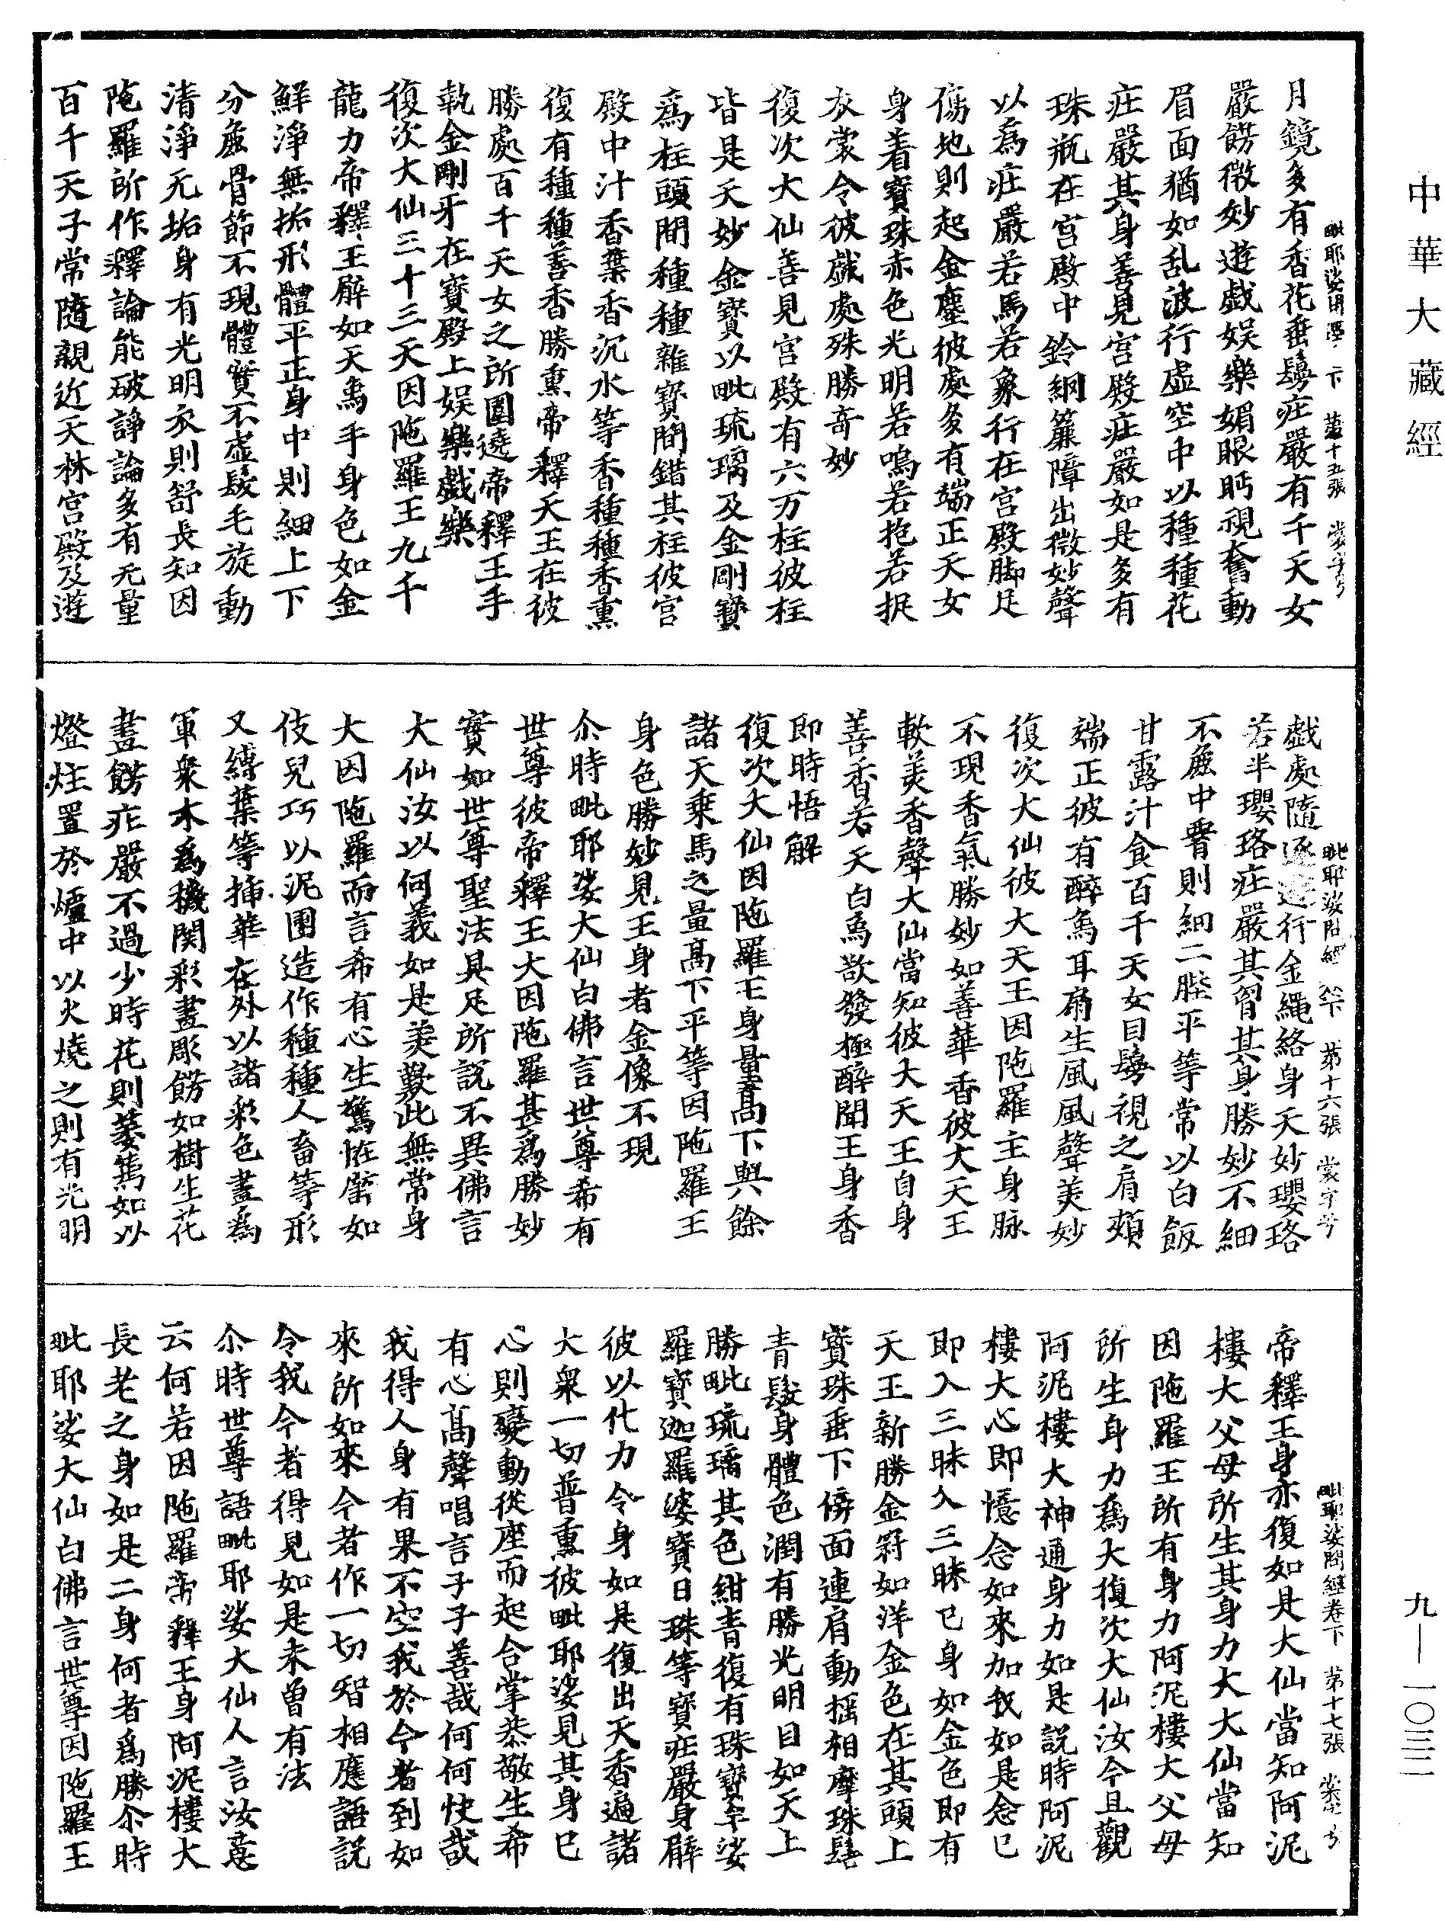 中華大藏經
毗耶娑問經 下 第十五張
月鏡多有香花垂鬘莊嚴有千天女
嚴餝微妙遊戲娛樂媚眼眄視奮動
眉面猶如乱波行虛空中以種種花
莊嚴其身善見宮殿莊嚴如是多有
珠瓶在宮殿中鈴網簾障出微妙聲
以爲莊嚴若馬若象行在宮殿脚足
傷地則起金塵彼處多有端正天女
身着寶珠赤色光明若嗚若抱若捉
衣裳令彼戲處殊勝奇妙
復次大仙善見宮殿有六万柱彼柱
皆是天妙金寶以毗琉璃及金剛寶
爲柱頭間種種雜寶間錯其柱彼宮
殿中汁香葉香沉水等香種種香熏
復有種種善香勝熏帝釋天王在彼
勝處百千天女之所圍遶帝釋王手
執金剛牙在寶殿上娛樂戲樂
復次大仙三十三天因陁羅王九千
龍力帝釋王臂如天象手身色如金
鮮淨無垢形體平正身中則細上下
分麁骨節不現體實不虛髮毛旋動
清淨无垢身有光明衣則舒長知因
陁羅所作釋論能破諍論多有无量
百千天子常隨親近天林宮殿及遊
毗耶娑問經 下 第十六張 裳字号
戲處隨逐遊行金繩絡身天妙瓔珞
若半瓔珞莊嚴其胷其身勝妙不細
不麁中臋則細二髀平等常以白飯
甘露汁食百千天女目鬘視之肩頰
端正彼有醉象耳扇生風風聲美妙
復次大仙彼大天王因陁羅主身脉
不現香氣勝妙如善華香彼大天王
軟美香聲大仙當知彼大天王自身
善香若天白象欲發極醉聞王身香
即時悟解
復次大仙因陁羅王身量高下與餘
諸天乘馬之量高下平等因陁羅王
身色勝妙見王身者金像不現
尒時毗耶娑大仙白佛言世尊希有
世尊彼帝釋王大因陁羅甚爲勝妙
實如世尊聖法具足所說不異佛言
大仙汝以何義如是美歎此無常身
大因陁羅而言希有心生驚恠譬如
伎兒巧以泥團造作種種人畜等形
又縛葉等揷華在外以諸彩色畫爲
軍衆木爲機関彩畫彫餝如樹生花
畫餝莊嚴不過少時花則萎蔫如以
燈炷置於爐中以火燒之則有光明
毗耶娑問經卷下 第十七張
帝釋王身亦復如是大仙當知阿泥
樓大父母所生其身力大大仙當知
因陁羅王所有身力阿泥樓大父母
所生身力爲大復次大仙汝今且觀
阿泥樓大神通身力如是說時阿泥
樓大心即憶念如來加我如是念已
即入三昧入三昧已身如金色即有
天王新勝金𥳑如洋金色在其頭上
寶珠垂下傍面連肩動搖相摩珠髻
青髮身體色潤有勝光明目如天上
勝毗琉璃其色紺青復有珠寶牟娑
羅寶迦羅婆寶日珠等寶莊嚴身臂
彼以化力令身如是復出天香遍諸
大衆一切普熏彼毗耶娑見其身已
心則變動從座而起合掌恭敬生希
有心高聲唱言子子善哉何何快哉
我得人身有果不空我於今者到如
來所如來今者作一切智相應語說
令我今者得見如是未曾有法
尒時世尊語毗耶娑大仙人言汝意
云何若因陁羅帝釋王身阿泥樓大
長老之身如是二身何者爲勝尒時
毗耶娑大仙白佛言世尊因陁羅王
九—一〇三二